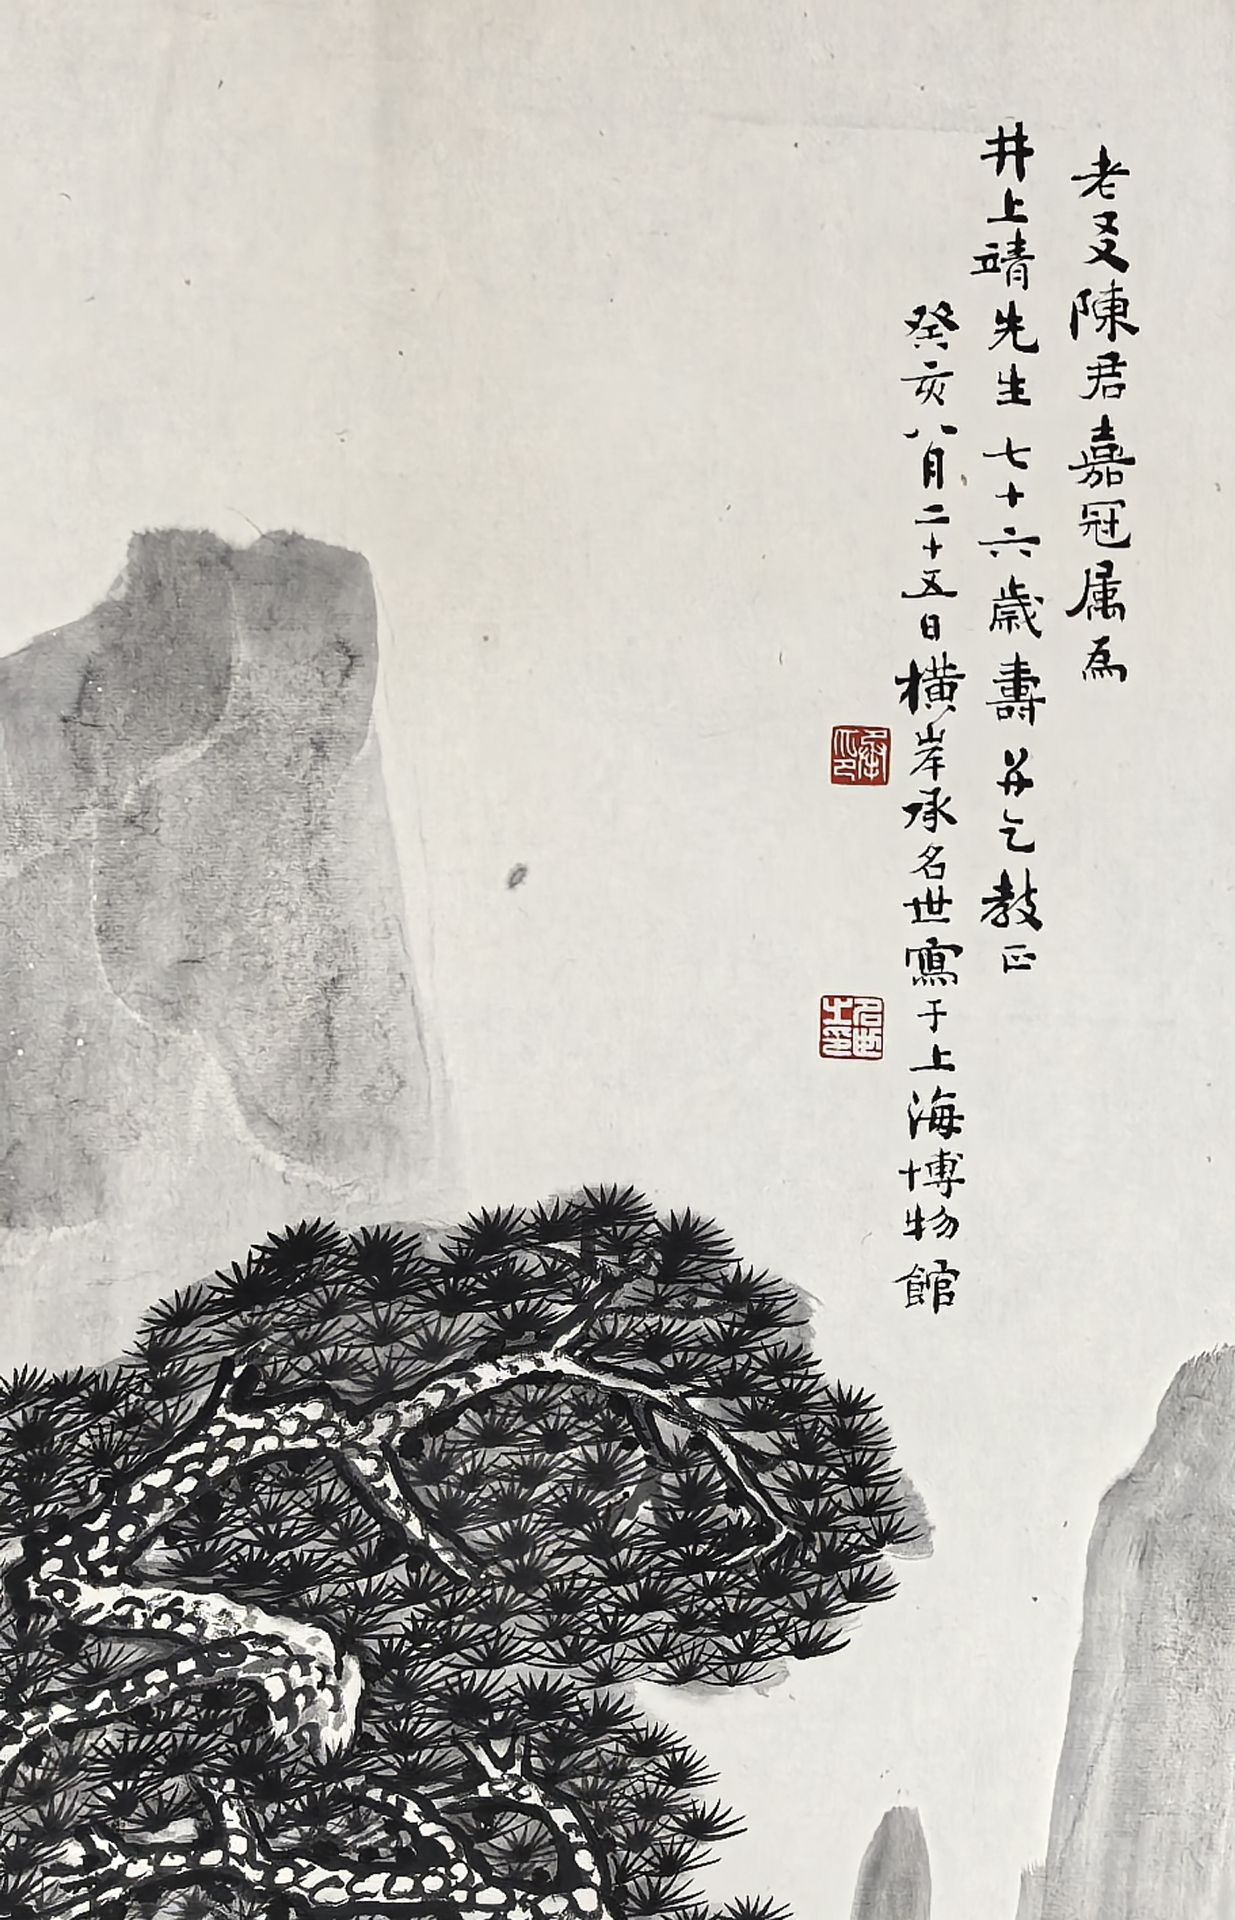 老友陳君嘉冠属为
井上靖先生七十六歲壽并乞教正
癸亥八月二十五日橫岸承名世寫于上海博物館
名世
之印